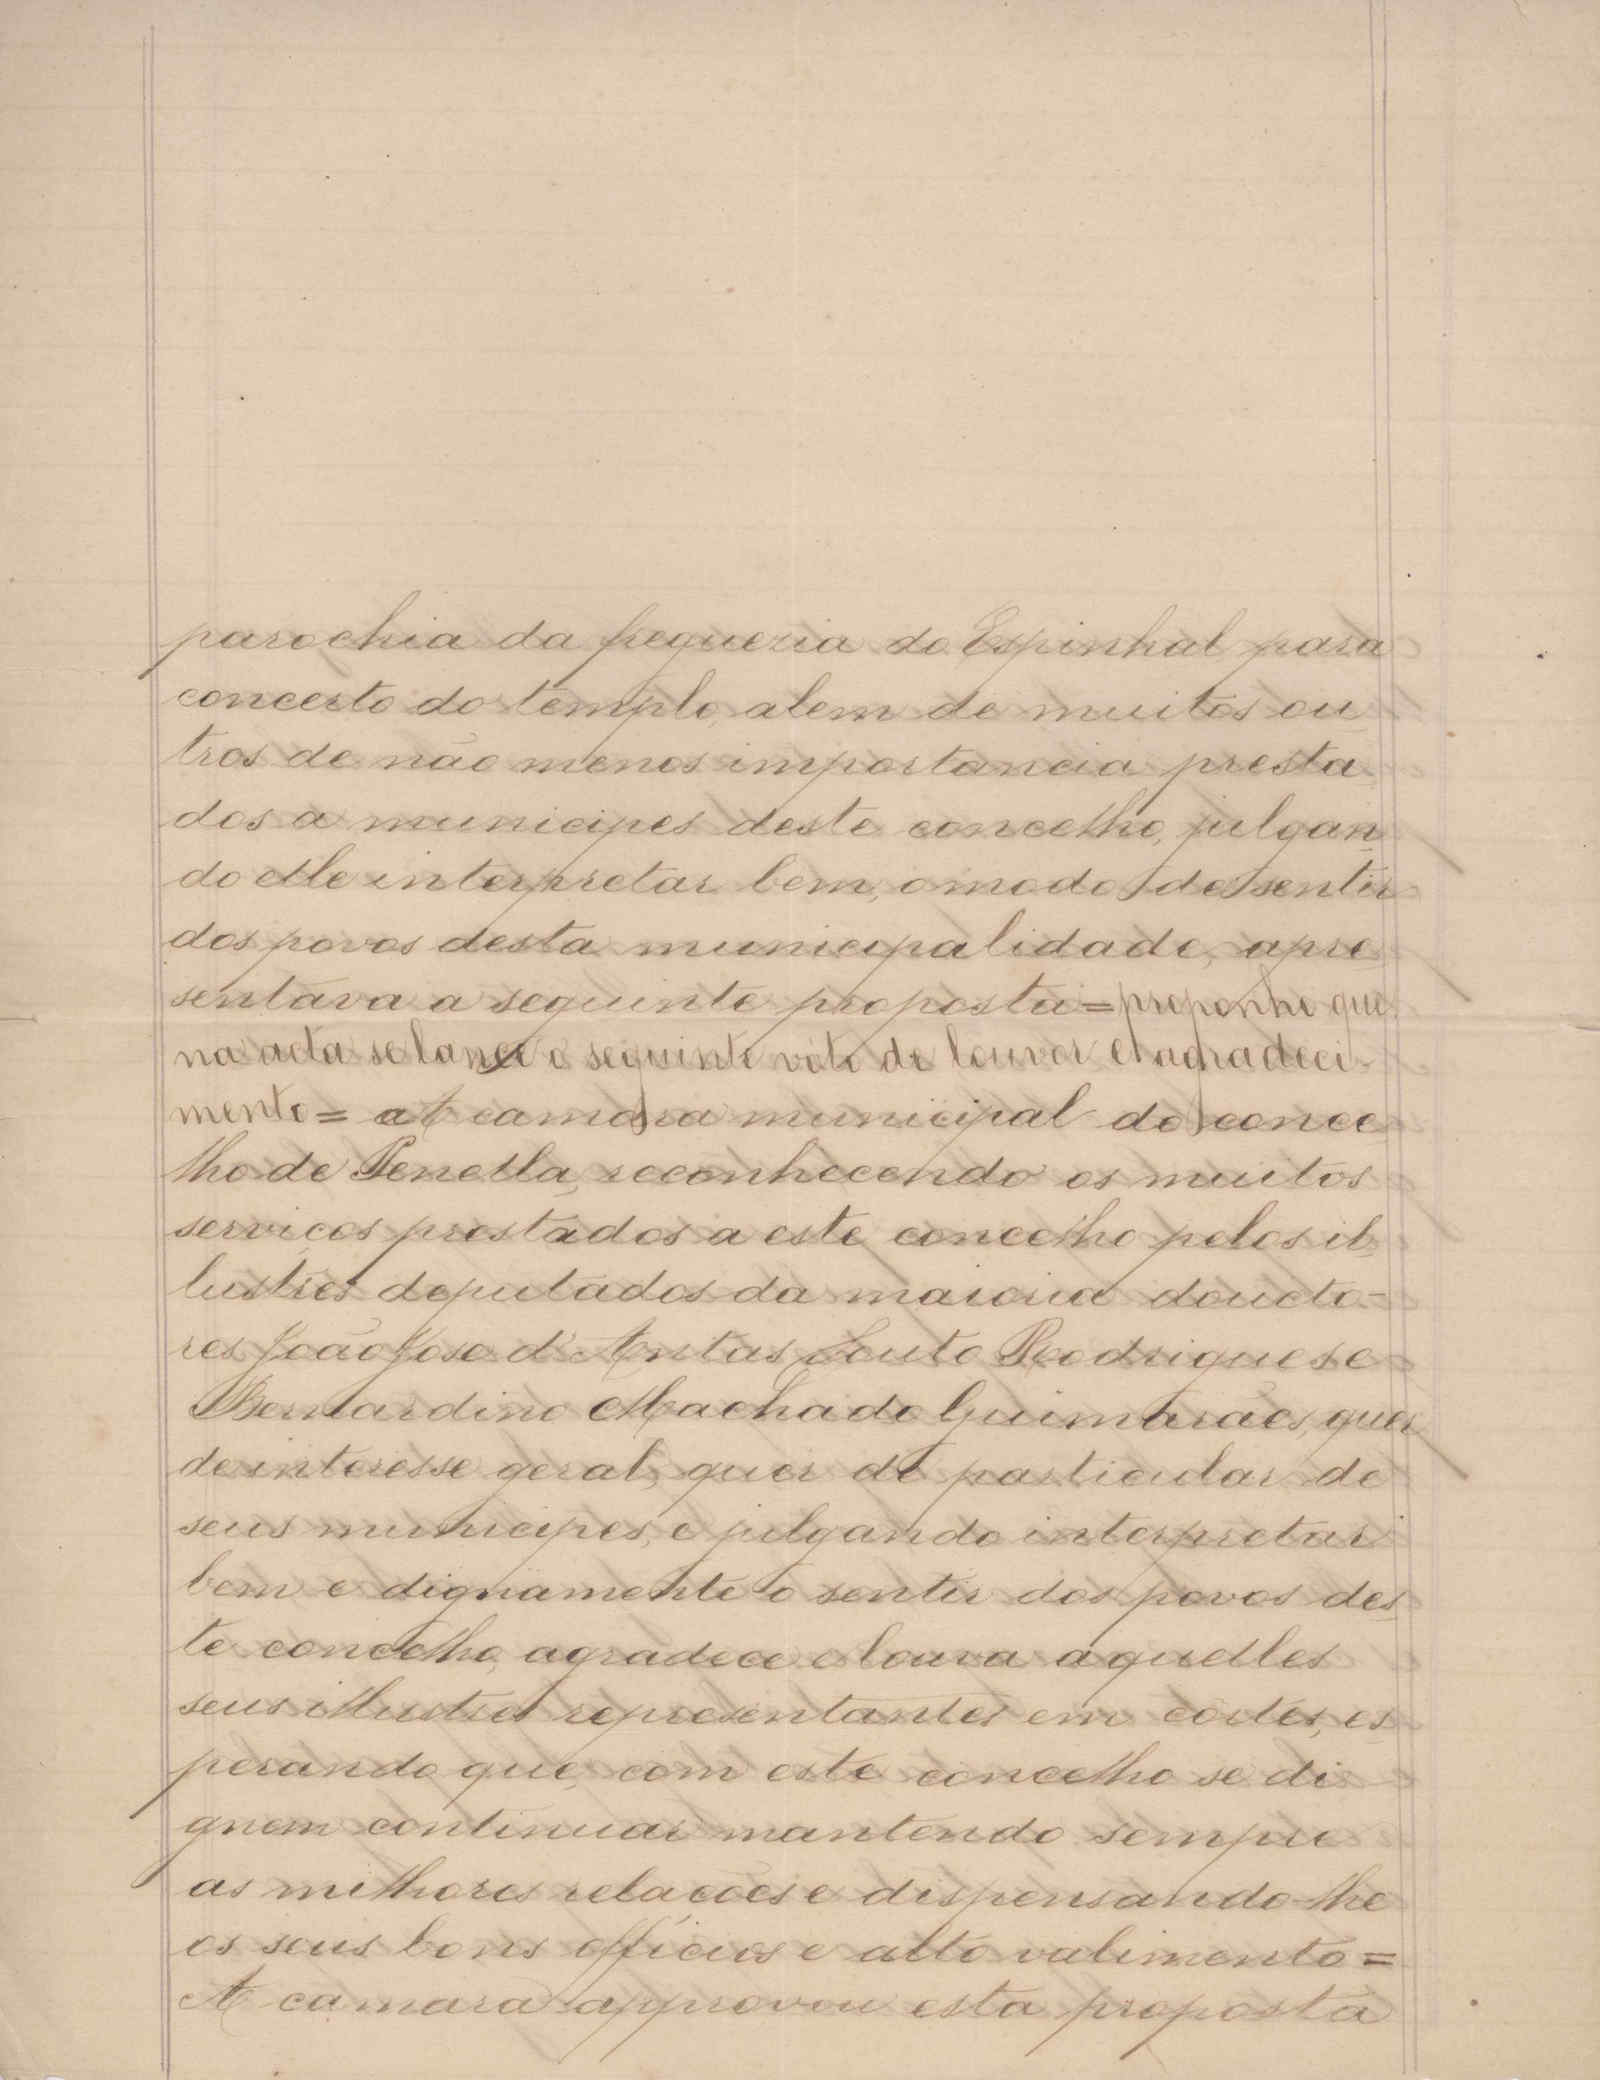 parochia da freguezia do Espinhal para
concerto do templo, alem de muitos ou
tros de não menos importancia presta
dos a municipes deste concelho, julgan
do elle interpretar bem, o modo de sentir
dos povos desta municipalidade, apre
sentava a seguinte proposta = proponho que
na acta se lance o seguinte voto de louvor e agradeci-
mento = A camara municipal do conce
lho de Penella, reconhecendo os muitos
serviços prestados a este concelho pelos il
lustres deputados da maioria doucto-
res João José d'Antas Souto Rodrigues e
Bernardino Machado Guimarães, quer
de interesse geral, quer de particular de
seus municipes, e julgando interpretar
bem e dignamente o sentir dos povos des
te concelho, agradece e louva aquelles
seus illustres representantes em côrtes, es
perando que, com este concelho se di
gnem continuar mantendo sempre
as milhores relações e dispensando-lhe
os seus bons officios e alto valimento =
A camara approvou esta proposta